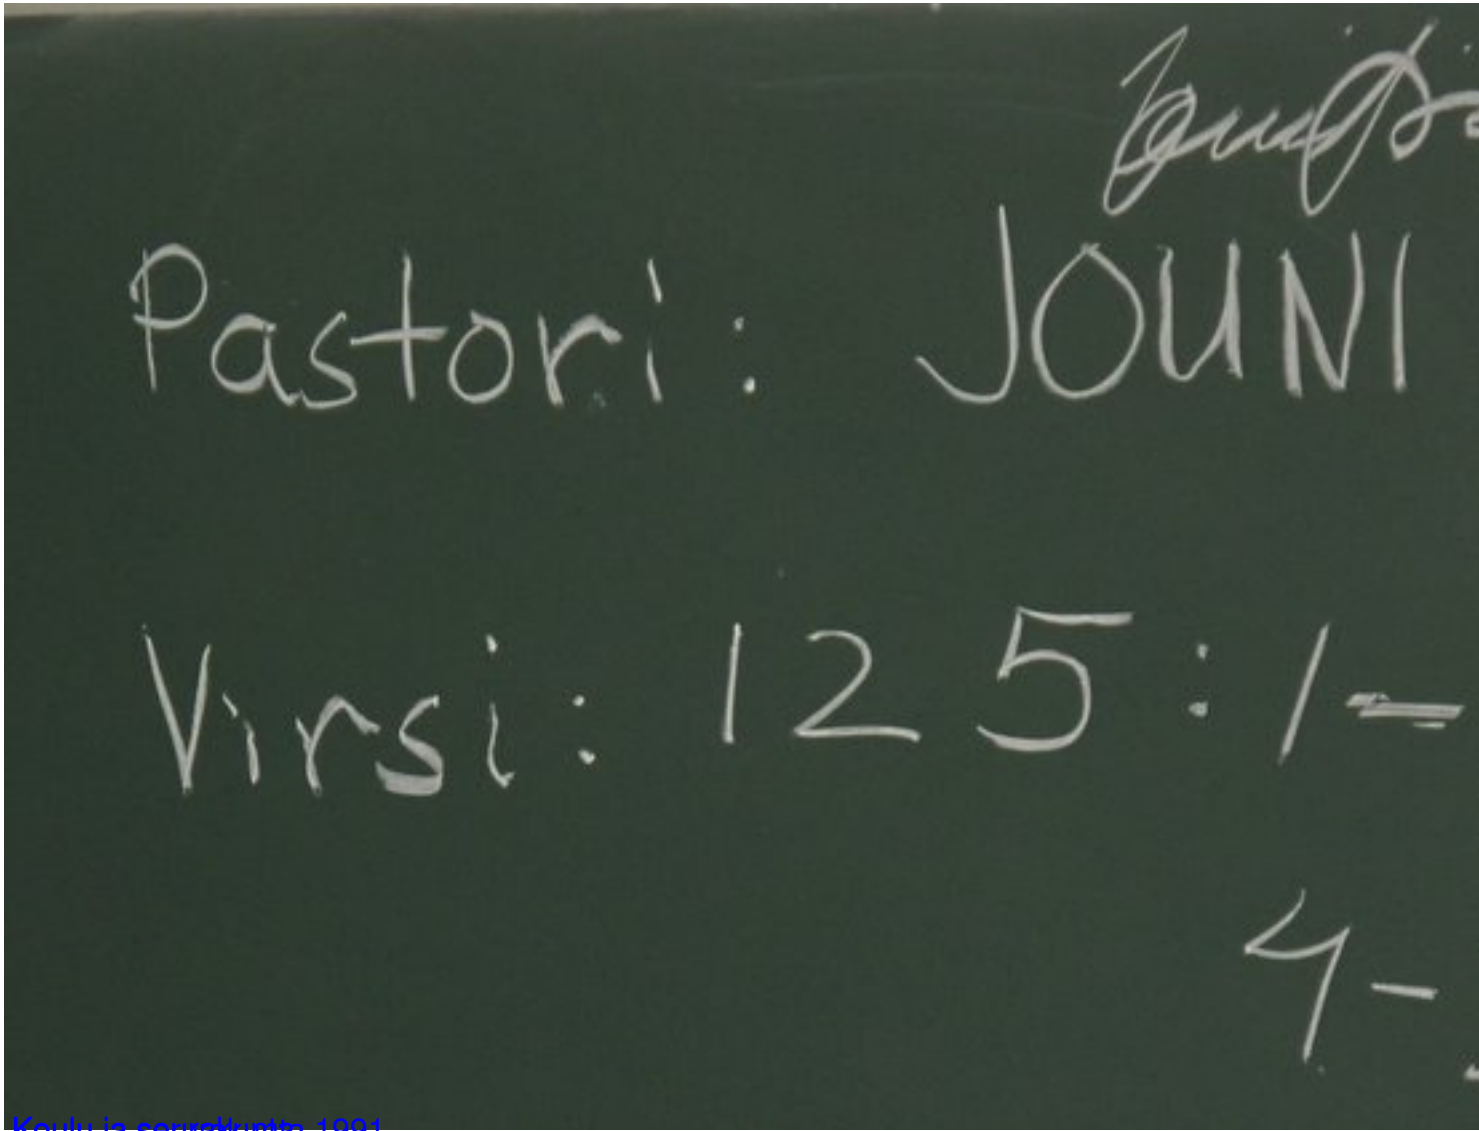 Pastori: JOUNI
Virsi: 125:1-
4-
Koulu ja seurakunta 1991